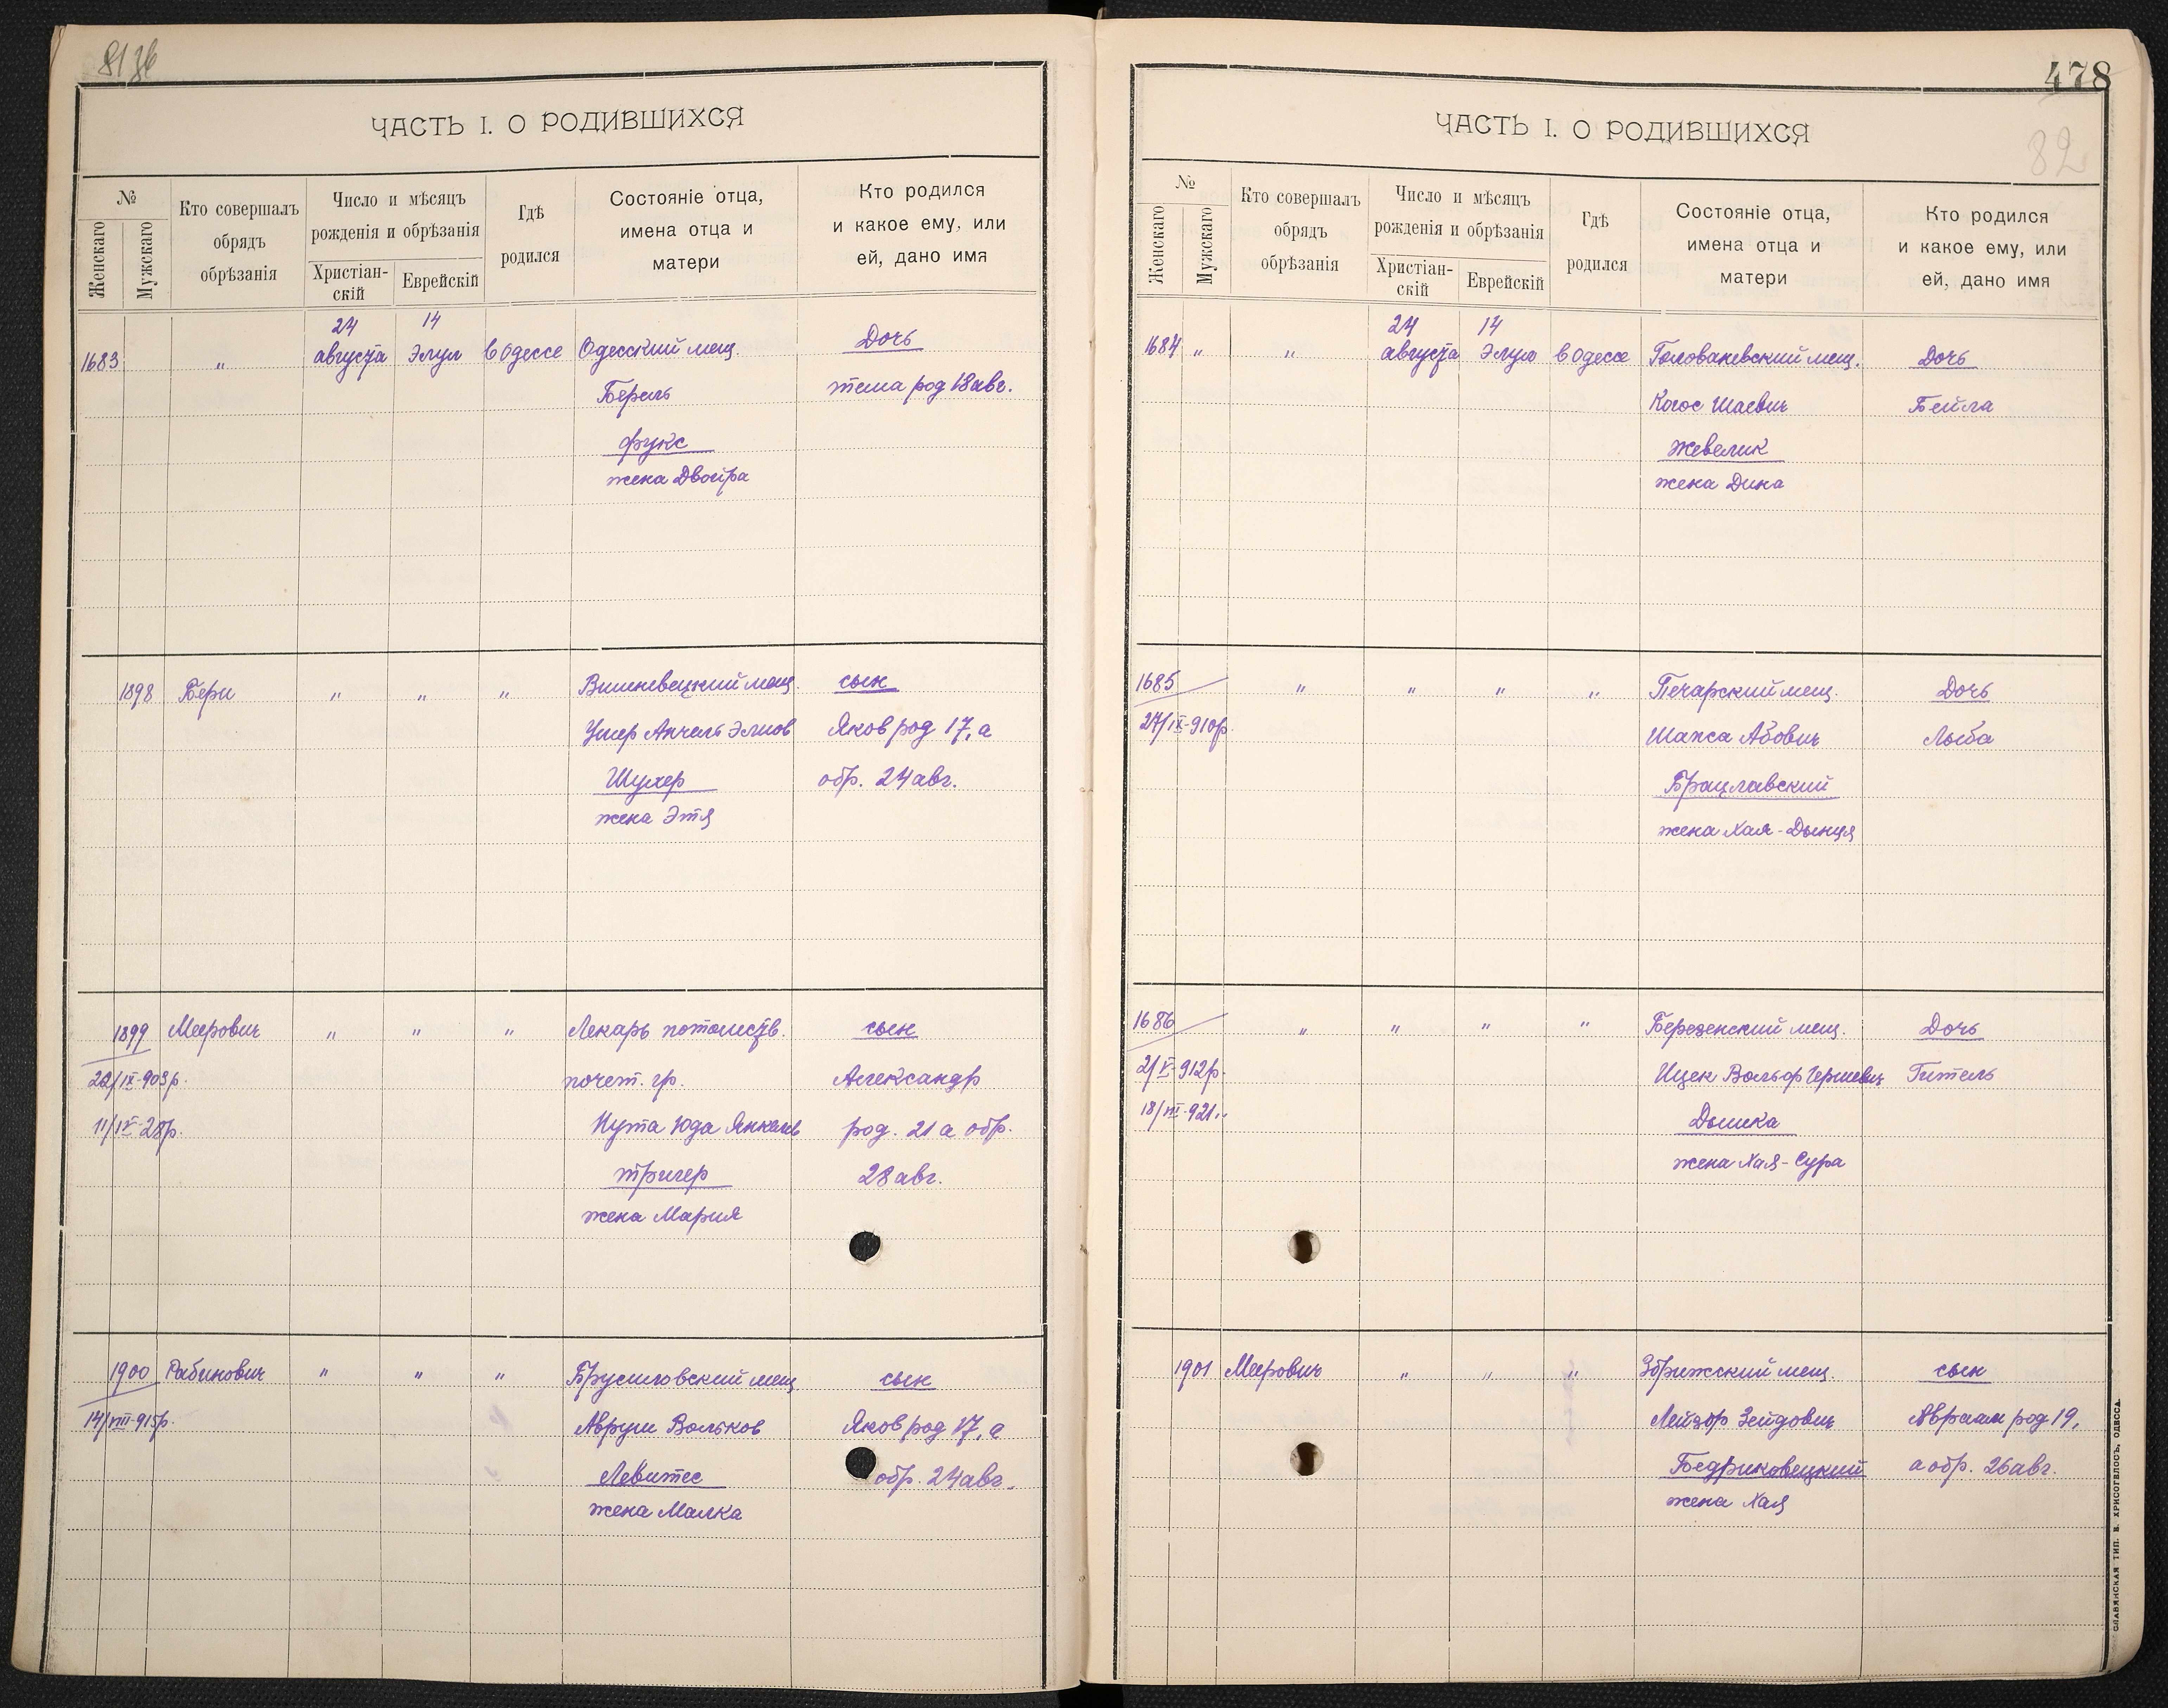 478
82
ЧАСТЬ I. О РОДИВШИХСЯ
№
Женскаго
Мужскаго
Кто совершалъ
обрядъ
обрѣзанія
Число и мѣсяцъ
рожденія и обрѣзанія
Христіан-
скій
Еврейскій
Гдѣ
родился
Состояніе отца,
имена отца и
матери
Кто родился
и какое ему, или
ей, дано имя
1683 „ 24 августа 14 Элул в Одессе Одесский мещ. Дочь
Берель род 18 авг.
Фукс
жена Двойра
1898 Бери „ „ „ Вишневецкий мещ. сын
Ушер Анчель Элиов Яков род 17, а
Шулер обр. 24 авг.
жена Этя
1899 Меерович „ „ „ Лекарь потомств. сын
22/IX-903р. почет. гр. Александр
11/IV-28р. Нута Юда Янкелев род. 21 а обр.
Тригер 28 авг.
жена Мария
1900 Рабинович „ „ „ Брусиловский мещ. сын
14/VIII-915р. Аврум Вольков Яков род 17, а
Левитес обр. 24 авг.
жена Малка
ЧАСТЬ I. О РОДИВШИХСЯ
№
Женскаго
Мужскаго
Кто совершалъ
обрядъ
обрѣзанія
Число и мѣсяцъ
рожденія и обрѣзанія
Христіан-
скій
Еврейскій
Гдѣ
родился
Состояніе отца,
имена отца и
матери
Кто родился
и какое ему, или
ей, дано имя
1684 „ „ 24 августа 14 Элул в Одессе Голованевский мещ. Дочь
Шаевич Бейла
Жевелик
жена Дина
1685 „ „ „ „ Печарский мещ. Дочь
27/IX-910р. Шапса Абович Лыба
Брацлавский
жена Хая-Дынця
1686 „ „ „ „ Березенский мещ. Дочь
2/V-912р. Ицек Вольф Гершевич Гитель
18/VII-921„ Дышка
жена Хая-Сура
1901 Меерович „ „ „ Збрижский мещ. сын
Лейзор Зейдович Авраам род 19,
Бедриковецкий а обр. 26 авг.
жена Хая
СЛАВЯНСКАЯ ТИП. Е. ХРИСОГЕЛОСЪ, ОДЕССА.